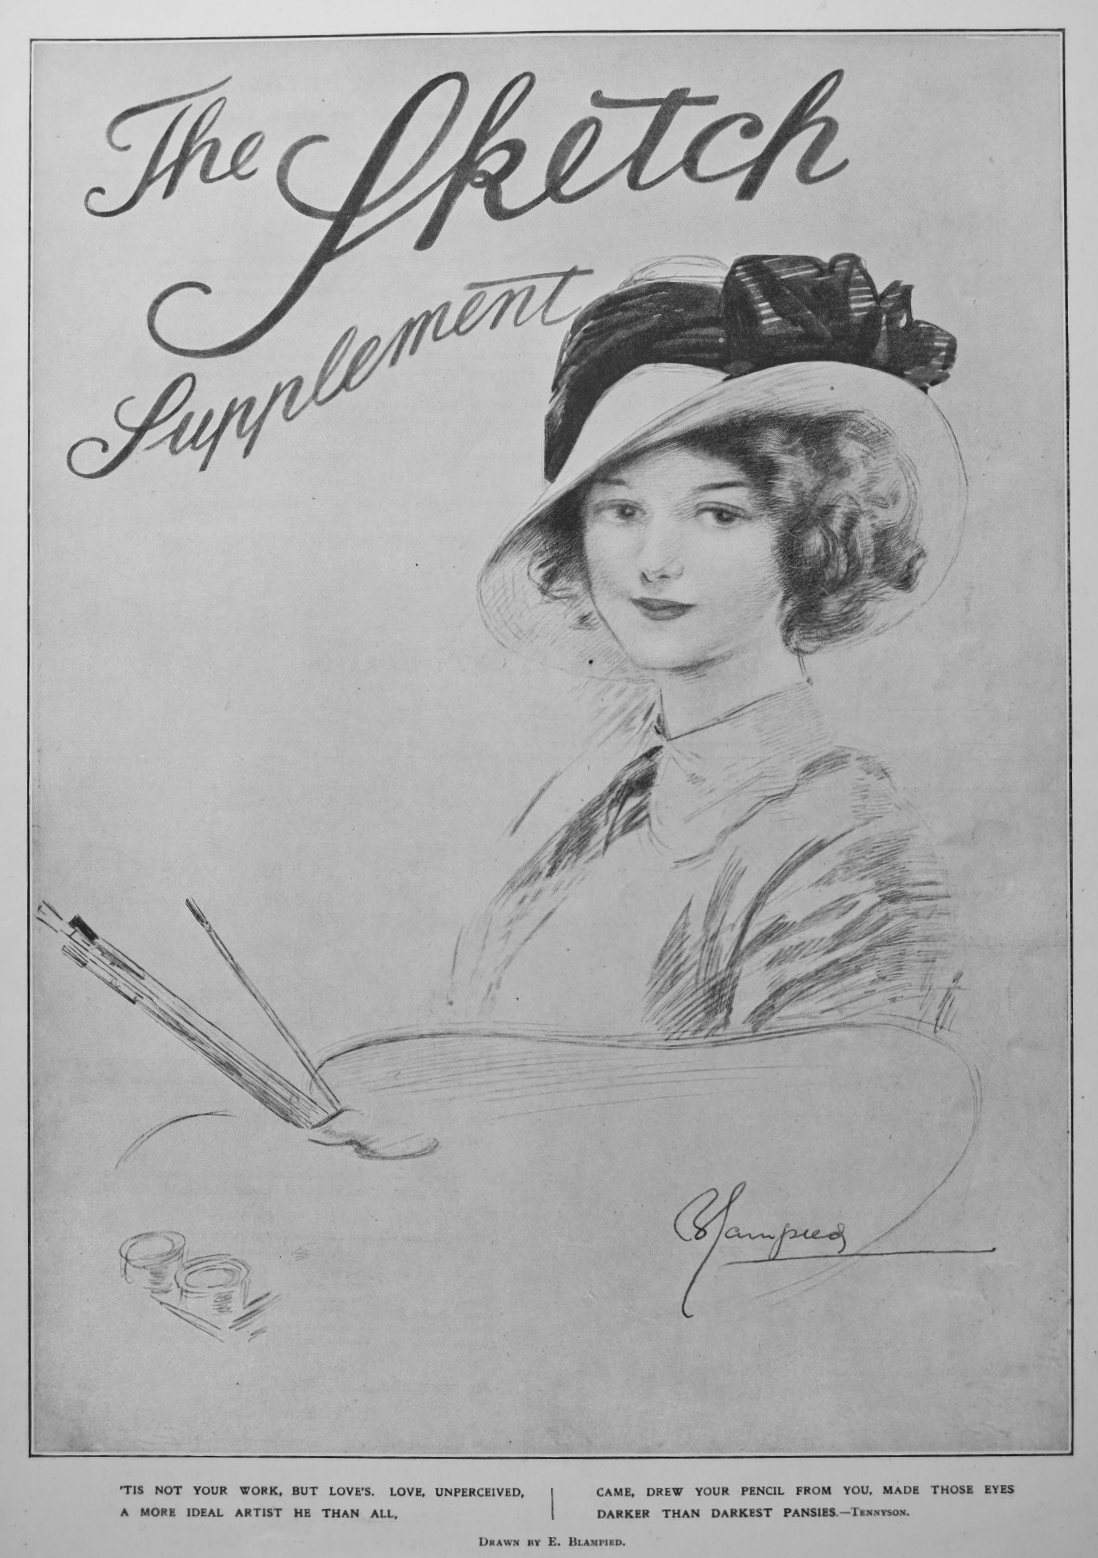 The Sketch
Supplement
Blampied
'TIS NOT YOUR WORK, BUT LOVE'S. LOVE, UNPERCEIVED,
A MORE IDEAL ARTIST HE THAN ALL,
CAME, DREW YOUR PENCIL FROM YOU, MADE THOSE EYES
DARKER THAN DARKEST PANSIES.—TENNYSON.
DRAWN BY E. BLAMPIED.